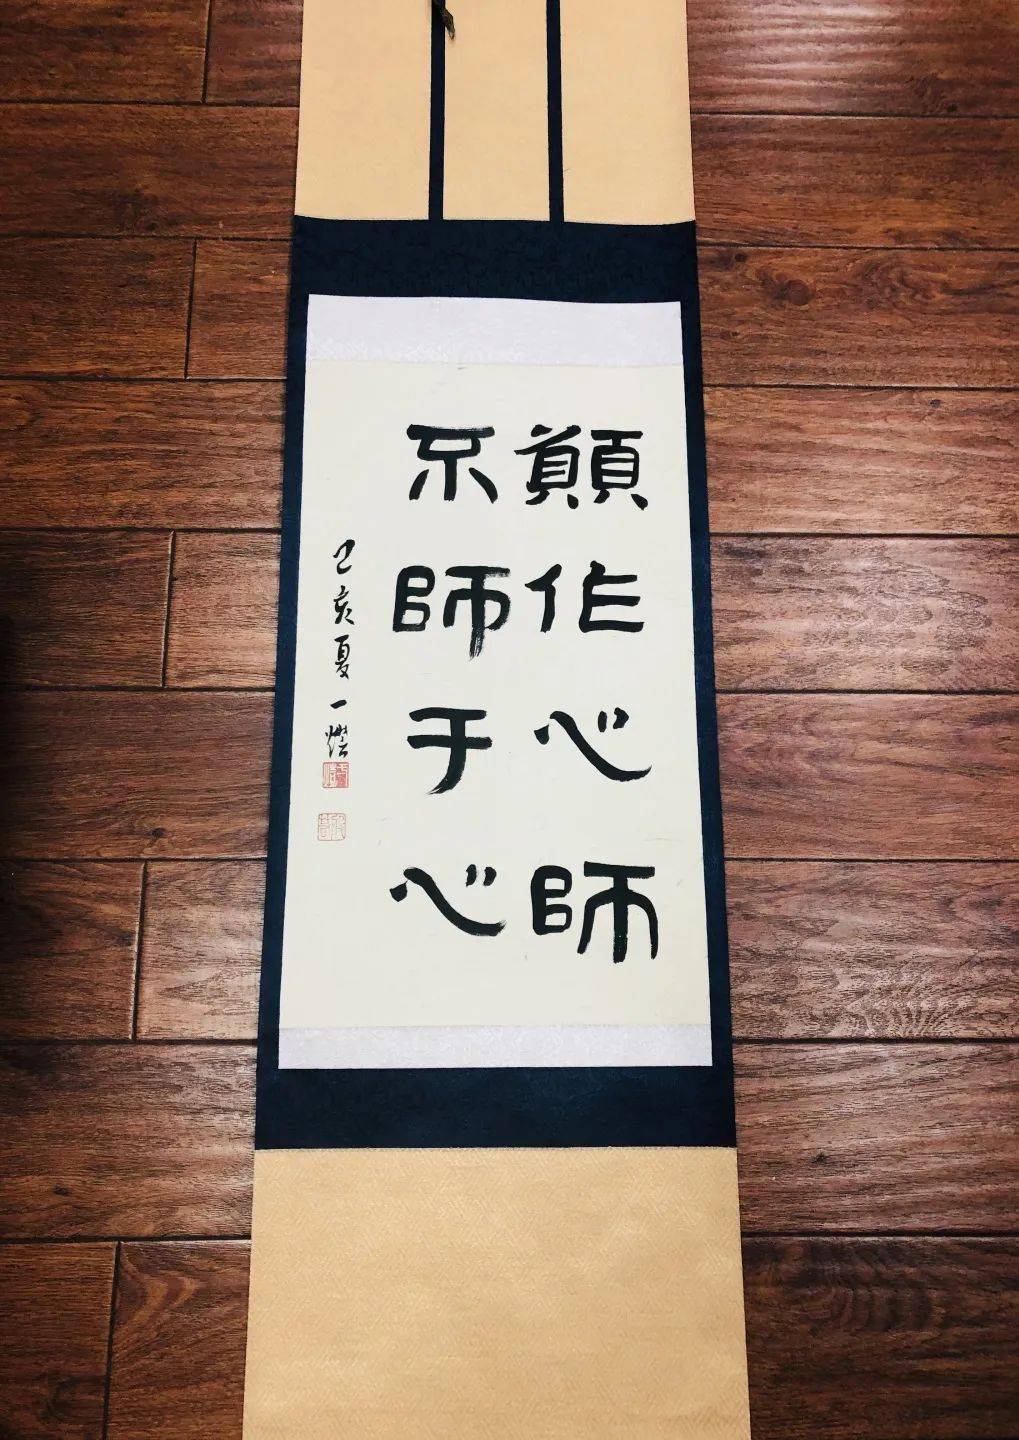 願作心師
不師于心
己亥夏一